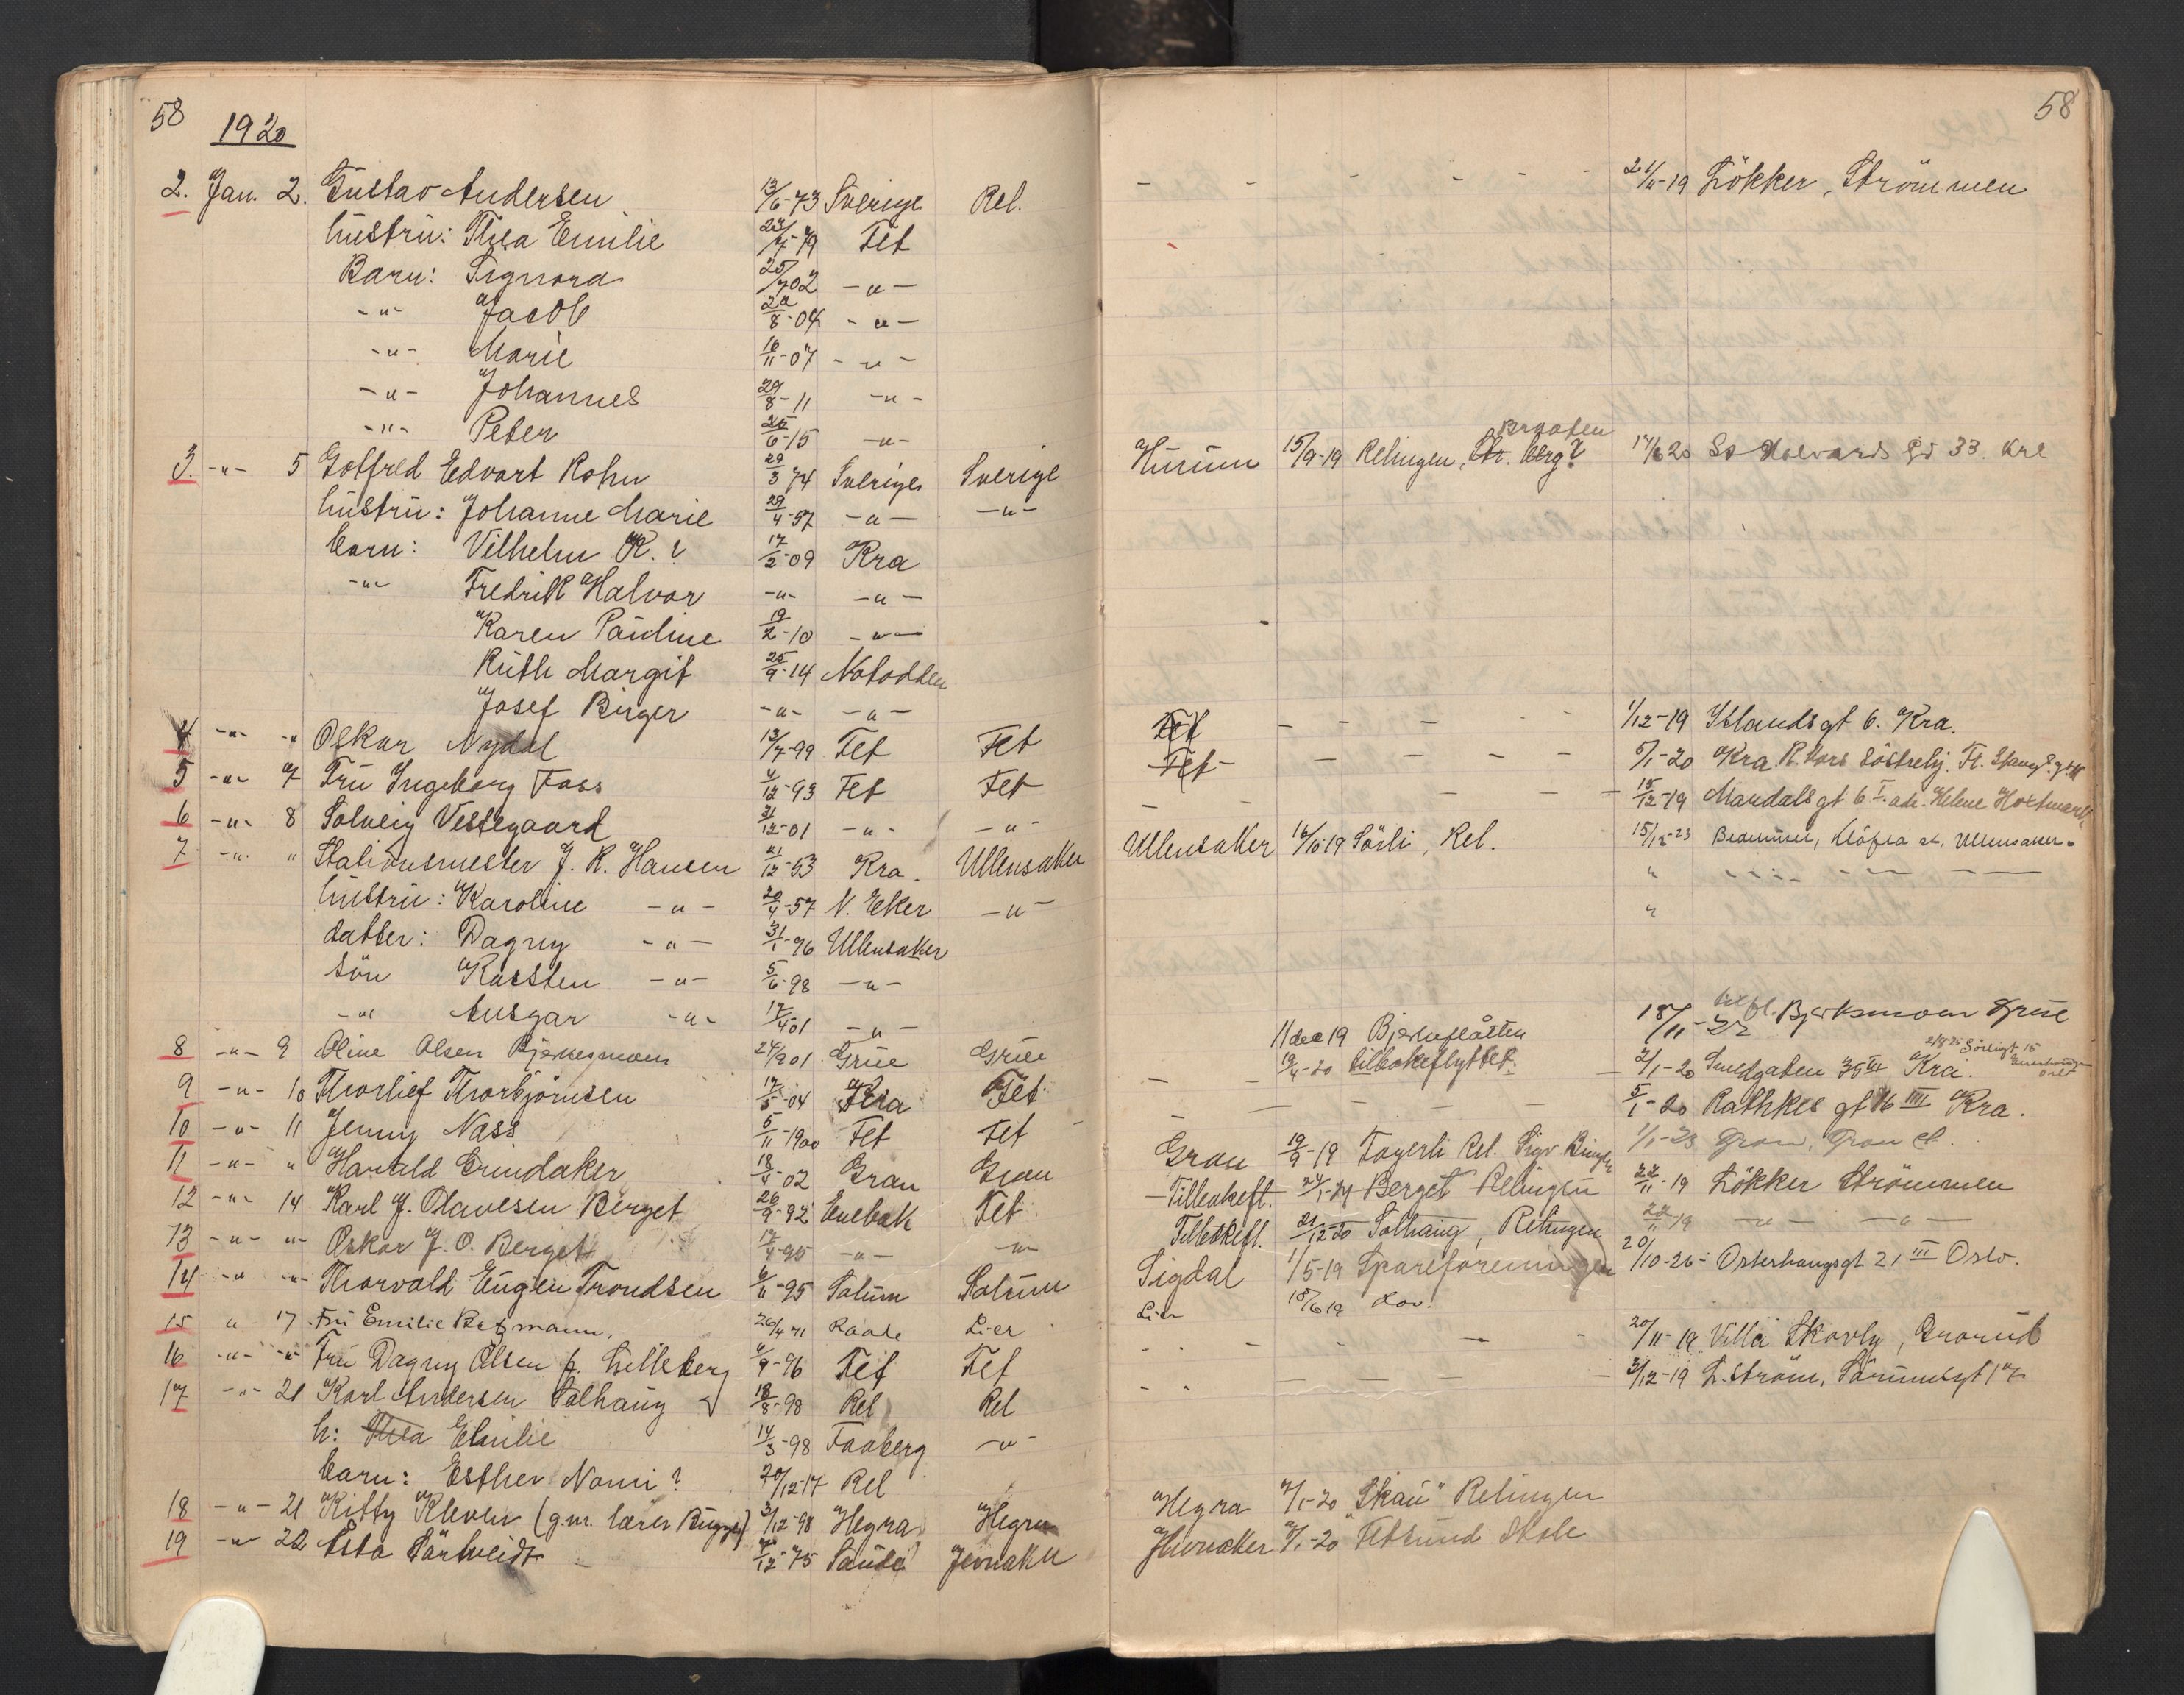 58
1920
2. Jan. 2. Gustav Andersen 13/6-73 Sverige Rel.
hustru: Thea Emilie 23/7-79 Fet
Barn: Signora 25/7 02 -"-
-"- Jacob 20/8-04 -"-
-"- Marie 16/11-07 -"-
-"- Johannes 29/8-11 -"-
-"- Peter 25/6-15 -"-
3. -"- 5 Gotfred Edvart Rohn 29/3 74 Sverige Sverige
hustru: Johanne Marie 29/4-57 -"- -"-
barn: Vilhelm K.? 17/2-09 Kra
-"- Fredrik Halvor -"- -"-
Karen Pauline 19/2-10 -"-
Ruth Margit 25/9-14 Notodden
Josef Birger -"- -"-
4 -"- " Oskar Nydal 13/7-99 Fet Fet
5 -"- 7 Fru Ingeborg Foss 4/12-93 Fet Fet
6 -"- 8 Solveig Vestegaard 31/12-01 -"- -"-
7 -"- " Stationsmester J. R. Hansen 21/12-53 Kra. Ullensaker
hustru: Karoline -"- 20/4-57 N. Eker -"-
datter: Dagny -"- 31/1-96 Ullensaker
søn Karsten -"- 5/6-98 -"-
-"- Ansgar -"- 17/4 01 -"-
8 -"- 9 Oline Olsen Bjerkesmoen 24/9 01 Grue Grue
9 -"- 10 Thorlief Thorbjörnsen 17/5-04 Kra Fet
10 -"- 11 Jenny Næss 5/11-1900 Fet Fet
11 -"- " Harald Grindaker 18/4-02 Gran Gran
12 -"- 14 Karl J. Olavesen Berget 26/9-92 Enebak Fet
13 -"- -"- Oskar J. O. Berget 17/4-95 -"- -"-
14 -"- -"- Thorvald Eugen Trondsen 6/11-95 Solum Solum
15 " 17 Fru Emilie Bergmann. 26/4 71 Raade Lier
16 -"- -"- Fru Dagny Olsen f. Lilleberg 4/9-96 Fet Fet
17 -"- 21 Karl Andersen Solhaug 18/8-98 Rel Rel
h: Thea Emilie 14/3-98 Faaberg -"-
barn: Esther Nomi? 20/12-17 Rel
18 -"- 21 Kitty Kleven (g.m. lærer Bugge) 3/12-98 Hegra Hegra
19 -"- 22 Asta Sörtveidt 7/12-75 Saude Jevnaker
58
- - - - - - 21/11-19 Lökker, Strömmen
Braaten
Hurum 15/9-19 Relingen, Str. berg? 17/6 20 St Halvards gd 33. Kra
Fet - - - - 1/12-19 Islandsgt 6. Kra.
Fet - - - - - 5/1-20 Kra. R. Kors Söstrehj.
- - - - 15/12-19 Mandalsgt 6 I. adr. Helene
Ullensaker 16/10-19 Sörli, Rel. 15/12-23 Klöfta st, Ullensaker.
" -"- -"-
"
18/11-22 Bjerksmoen Grue
11 dec 19 Bjerkeflåtten
19/4-20 tilbakeflyttet.
- - 2/1-20 Smedgaten 35 III Kra.
- - - - 5/1-20 Rathkes gt 16 III Kra.
Gran 19/9-19 Fagerli Rel. 1/1-23 Gran, Gran st.
Tilbakefl. 24/1-24 Berget Relingen 22/11-19 Lökker Strömmen
Tilbakefl. 21/12-20 Solhaug, Relingen 22/11 19 -"- -"-
Sigdal 1/5-19 Spareforeningen 20/10-26- Osterhausgt 21 III Oslo.
Lier 18/6 19
- - - - 20/11-19 Villa Skovly, Grorud
- - - - - 3/12-19 L.ström, Sörumsgt 17
Hegra 7/1-20 "Skau" Relingen
Jevnaker 8/1-20 Fetsund Skole